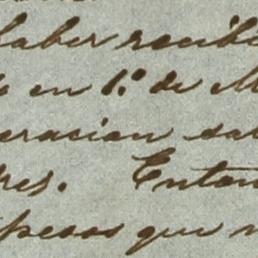 haber recibi
en 1º de M
eracion sal
res. Enton
pesos que